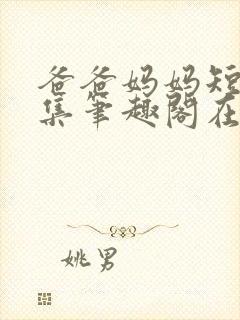 爸爸妈妈短
集筆趣閣在
姚男